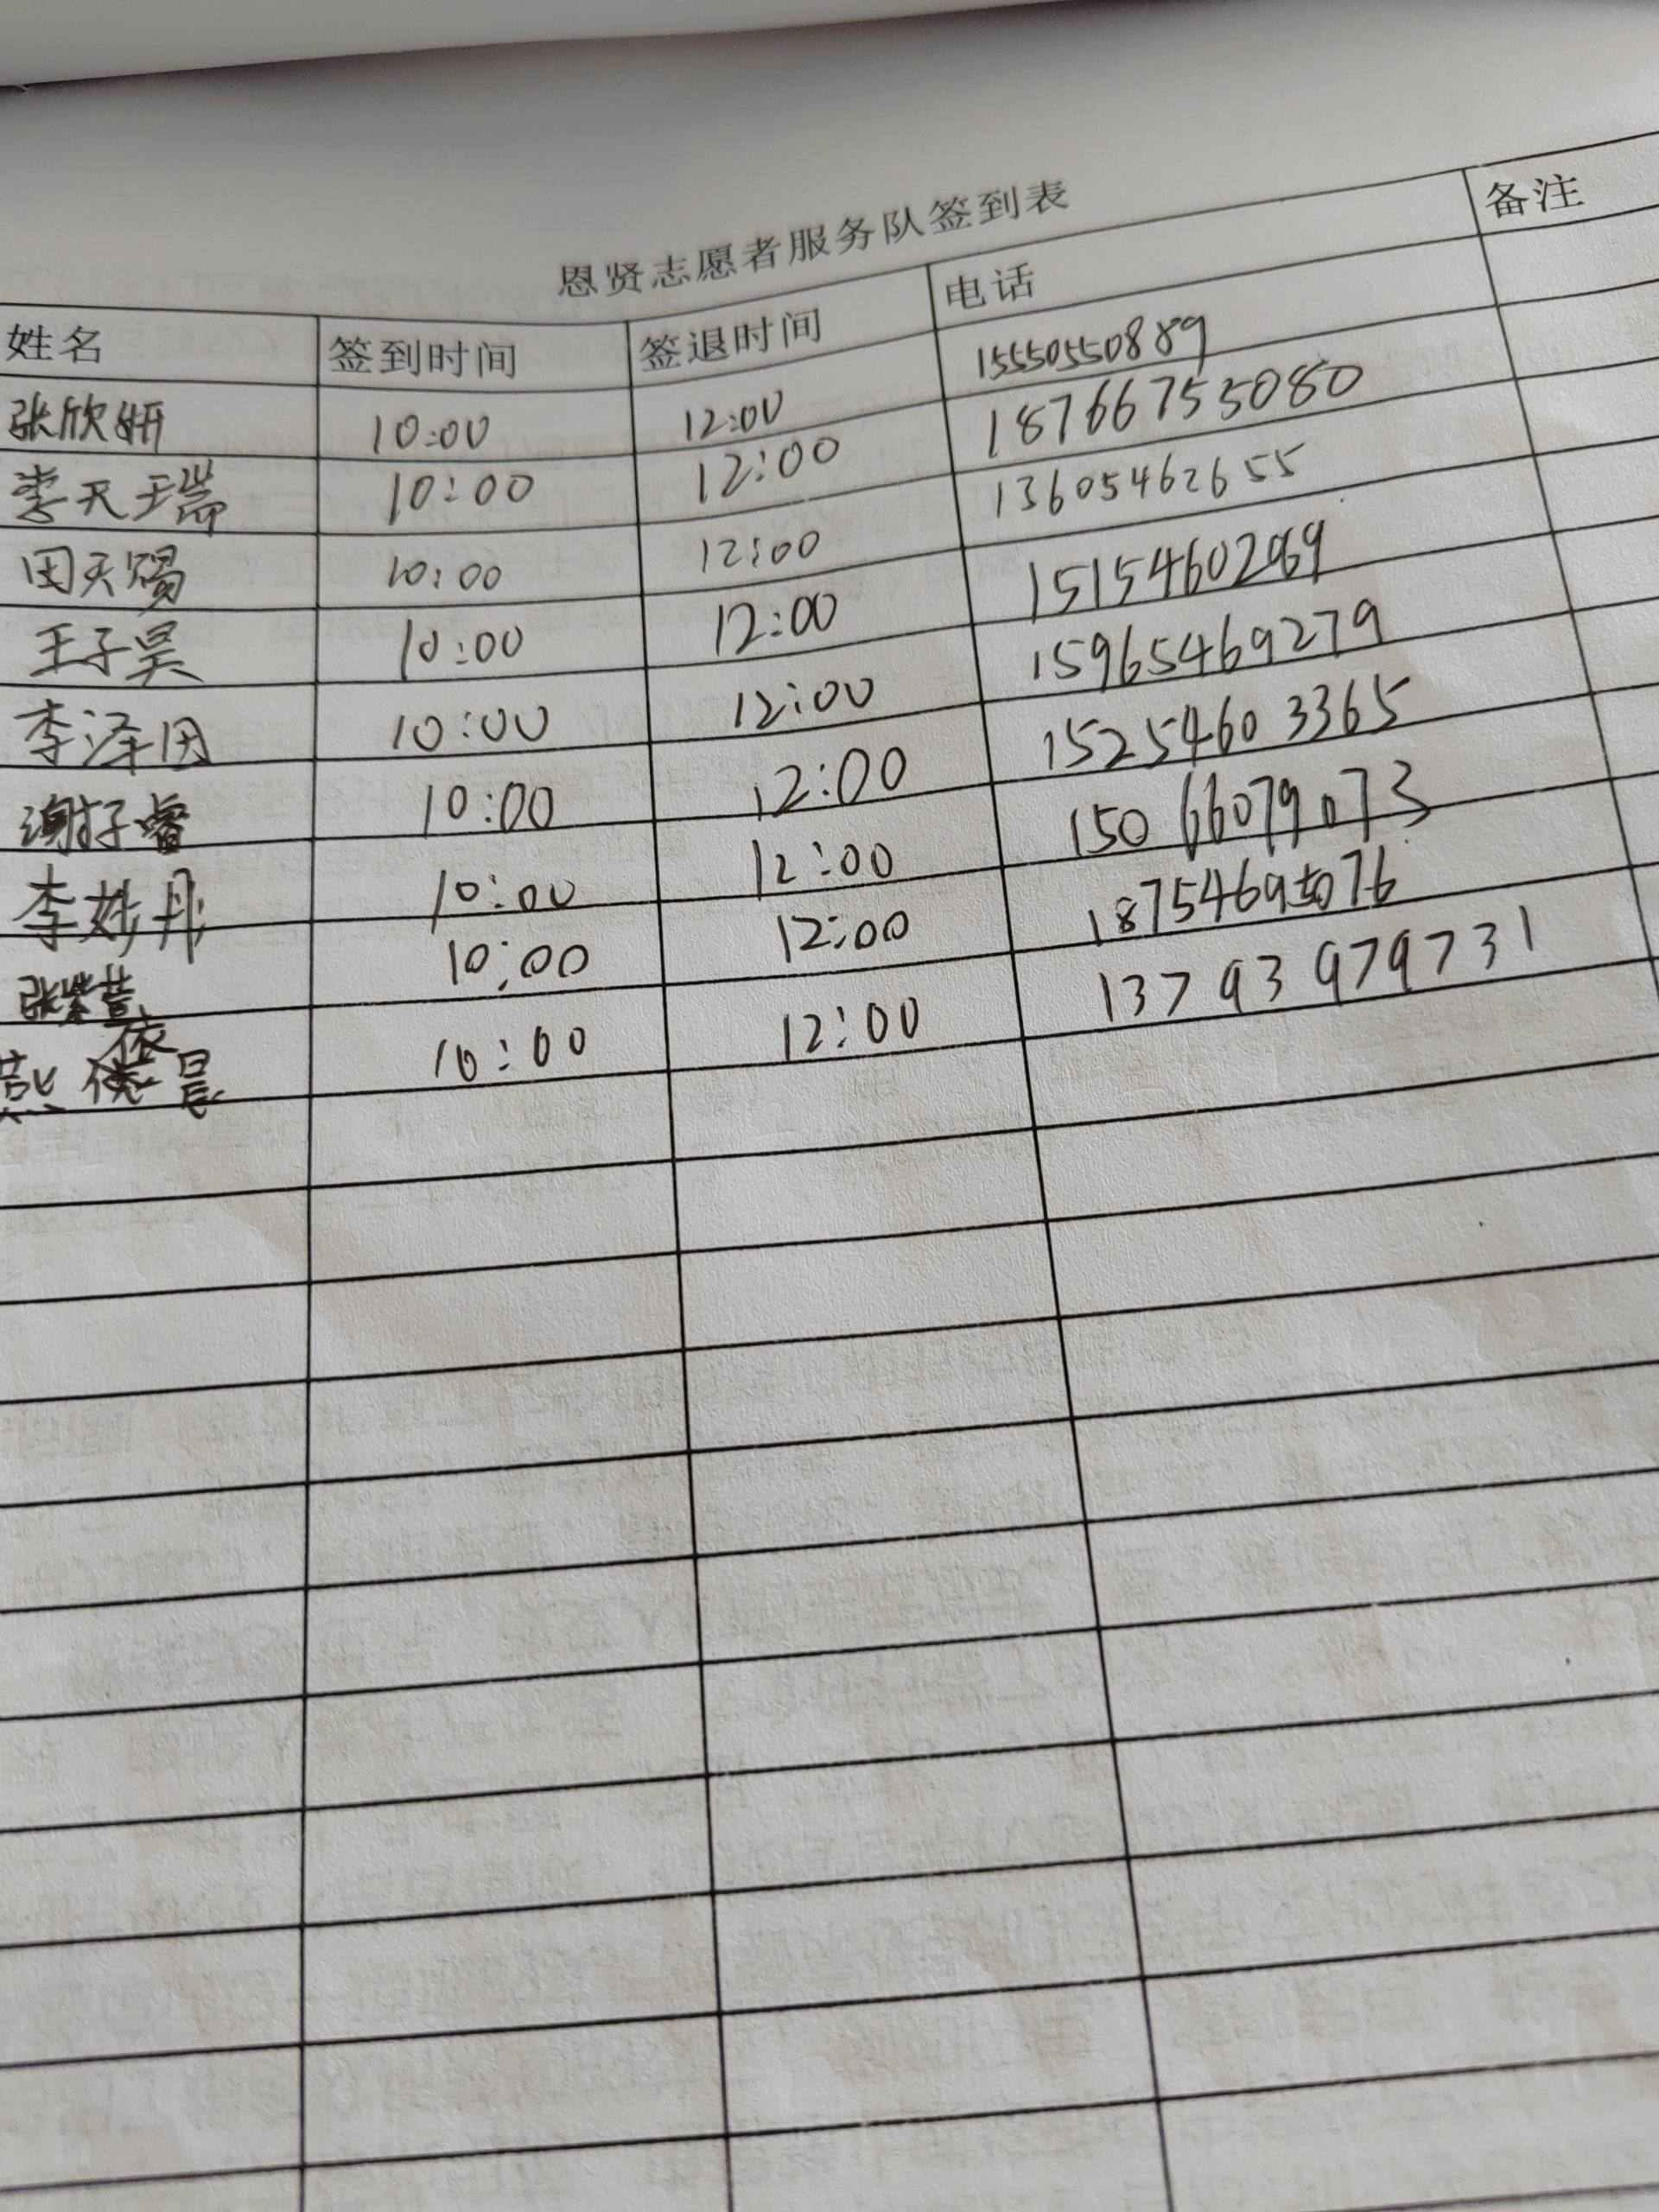 恩贤志愿者服务队签到表
姓名 签到时间 签退时间 电话 备注
张欣妍 10:00 12:00 15550550889
李天瑞 10:00 12:00 18766753080
田天赐 10:00 12:00 13605462655
王子昊 10:00 12:00 15154602969
李泽因 10:00 12:00 15965469279
谢子睿 10:00 12:00 15254603365
李妙彤 10:00 12:00 15066079073
张紫萱 10:00 12:00
燕依晨 10:00 12:00 13793979731